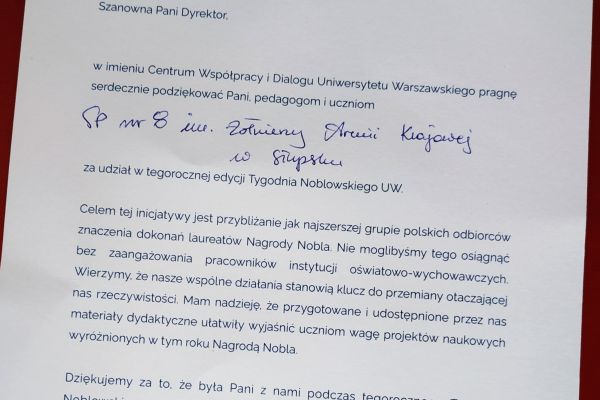 Szanowna Pani Dyrektor,
w imieniu Centrum Współpracy i Dialogu Uniwersytetu Warszawskiego pragnę
serdecznie podziękować Pani, pedagogom i uczniom
SP nr 8 im. Żołnierzy Armii Krajowej
w Słupsku
za udział w tegorocznej edycji Tygodnia Noblowskiego UW.
Celem tej inicjatywy jest przybliżanie jak najszerszej grupie polskich odbiorców
znaczenia dokonań laureatów Nagrody Nobla. Nie moglibyśmy tego osiągnąć
bez zaangażowania pracowników instytucji oświatowo-wychowawczych.
Wierzymy, że nasze wspólne działania stanowią klucz do przemiany otaczającej
nas rzeczywistości. Mam nadzieję, że przygotowane i udostępnione przez nas
materiały dydaktyczne ułatwiły wyjaśnić uczniom wagę projektów naukowych
wyróżnionych w tym roku Nagrodą Nobla.
Dziękujemy za to, że była Pani z nami podczas